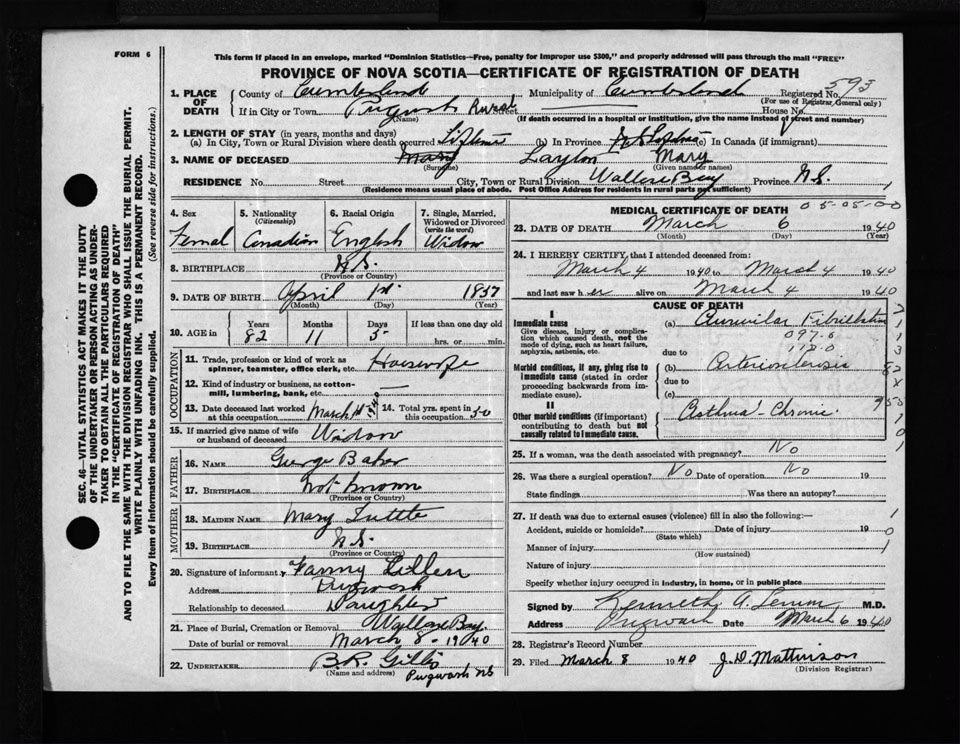 FORM 6
This form if placed in an envelope, marked "Dominion Statistics—Free, penalty for improper use $300," and properly addressed will pass through the mail "FREE"
PROVINCE OF NOVA SCOTIA—CERTIFICATE OF REGISTRATION OF DEATH
593
1. PLACE OF DEATH
County of Cumberland Municipality of Cumberland Registered No.
(For use of Registrar General only)
If in City or Town Pugwash Rural House No.
(Name) (If death occurred in a hospital or institution, give the name instead of street and number)
2. LENGTH OF STAY (in years, months and days)
(a) In City, Town or Rural Division where death occurred Lifetime (b) In Province (c) In Canada (if immigrant)
3. NAME OF DECEASED Mary Layton Mary
(Surname) (Given name or names)
RESIDENCE No. Street City, Town or Rural Division Wallace Bay Province N.S. 1
(Residence means usual place of abode. Post Office Address for residents in rural parts not sufficient)
4. Sex
Femal
5. Nationality
(Citizenship)
Canadian
6. Racial Origin
English
7. Single, Married, Widowed or Divorced
(write the word)
Widow
8. BIRTHPLACE N.S.
(Province or Country)
9. DATE OF BIRTH April 1st 1857
(Month) (Day) (Year)
10. AGE in
Years Months Days If less than one day old
82 11 5 hrs. or min.
OCCUPATION
11. Trade, profession or kind of work as spinner, teamster, office clerk, etc. Housewife
12. Kind of industry or business, as cotton-mill, lumbering, bank, etc.
13. Date deceased last worked at this occupation March 1st 1940 14. Total yrs. spent in this occupation 50
15. If married give name of wife or husband of deceased Widow
FATHER
16. NAME George Baker
17. BIRTHPLACE Not known
(Province or Country)
MOTHER
18. MAIDEN NAME Mary Tuttle
19. BIRTHPLACE N.S.
(Province or Country)
20. Signature of informant Fanny
Address Pugwash
Relationship to deceased Daughter
21. Place of Burial, Cremation or Removal Wallace Bay
Date of burial or removal March 8 - 1940
22. UNDERTAKER B.R. Gillis
(Name and address) Pugwash NS
MEDICAL CERTIFICATE OF DEATH 05-05-00
23. DATE OF DEATH March 6 1940
(Month) (Day) (Year)
24. I HEREBY CERTIFY, that I attended deceased from:
March 4 1940 to March 4 1940
and last saw her alive on March 4 1940
CAUSE OF DEATH
I
Immediate cause
Give disease, injury or complication which caused death, not the mode of dying, such as heart failure, asphyxia, asthenia, etc.
(a) Auricular Fibrillation
097.6
due to
Morbid conditions, if any, giving rise to immediate cause (stated in order proceeding backwards from immediate cause).
(b) Arteriosclerosis
due to
(c)
II
Other morbid conditions (if important) contributing to death but not causally related to immediate cause.
Asthma - Chronic
25. If a woman, was the death associated with pregnancy? No
26. Was there a surgical operation? No Date of operation No 19
State findings Was there an autopsy?
27. If death was due to external causes (violence) fill in also the following:—
Accident, suicide or homicide? Date of injury 19
(State which)
Manner of injury
(How sustained)
Nature of injury
Specify whether injury occurred in industry, in home, or in public place
Signed by Kenneth A. M.D.
Address Pugwash Date March 6 1940
28. Registrar's Record Number
29. Filed March 8 1940 J. D. Mattinson
(Division Registrar)
SEC. 46—VITAL STATISTICS ACT MAKES IT THE DUTY
OF THE UNDERTAKER OR PERSON ACTING AS UNDER-
TAKER TO OBTAIN ALL THE PARTICULARS REQUIRED
IN THE "CERTIFICATE OF REGISTRATION OF DEATH"
AND TO FILE THE SAME WITH THE DIVISION REGISTRAR WHO SHALL ISSUE THE BURIAL PERMIT.
WRITE PLAINLY WITH UNFADING INK. THIS IS A PERMANENT RECORD.
Every item of information should be carefully supplied. (See reverse side for instructions.)